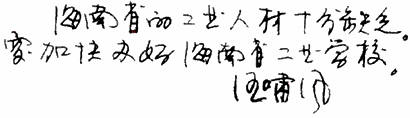 海南省的工艺人材十分缺乏。
要加快办好海南省工艺学校。
汪啸风